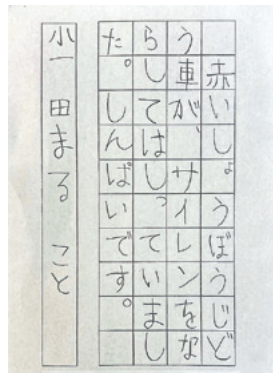 赤いしょうぼうじど
う車が、サイレンをな
らしてはしっていまし
た。しんばいです。
小一 田まる こと